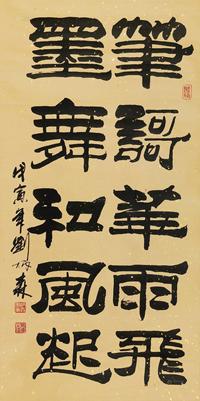 筆歌華雨飛
墨舞和風起
戊寅年劉炳森